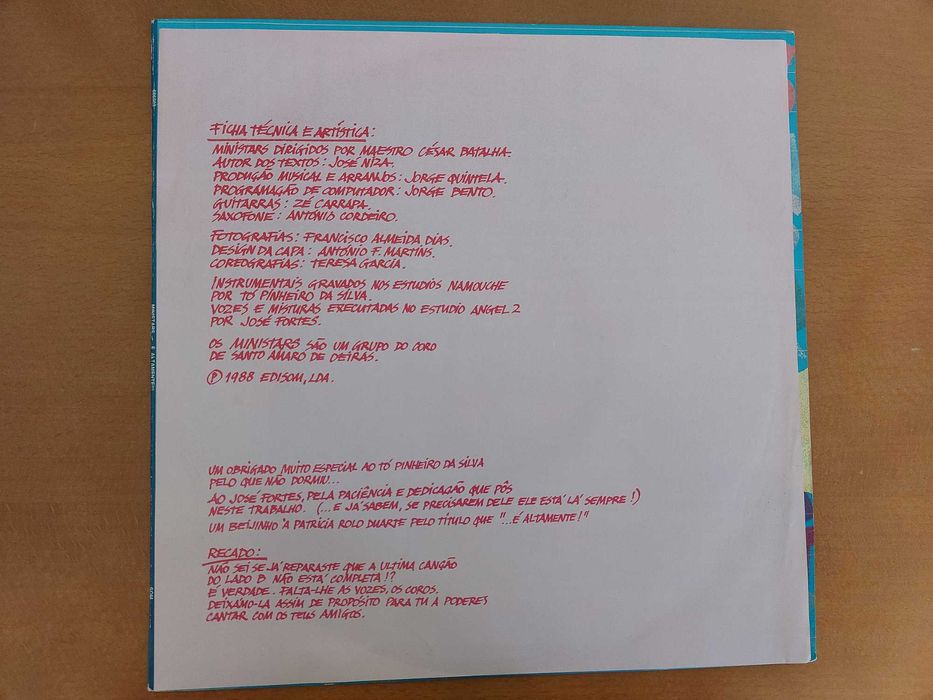 FICHA TÉCNICA E ARTÍSTICA:
MINISTARS DIRIGIDOS POR MAESTRO CÉSAR BATALHA.
AUTOR DOS TEXTOS: JOSÉ NIZA.
PRODUÇÃO MUSICAL E ARRANJOS: JORGE QUINTELA.
PROGRAMAÇÃO DE COMPUTADOR: JORGE BENTO.
GUITARRAS: ZÉ CARRAPA.
SAXOFONE: ANTÓNIO CORDEIRO.
FOTOGRAFIAS: FRANCISCO ALMEIDA DIAS.
DESIGN DA CAPA: ANTÓNIO F. MARTINS.
COREOGRAFIAS: TERESA GARCIA.
INSTRUMENTAIS GRAVADOS NOS ESTUDIOS NAMOUCHE
POR TÓ PINHEIRO DA SILVA.
VOZES E MISTURAS EXECUTADAS NO ESTUDIO ANGEL 2
POR JOSÉ FORTES.
OS MINISTARS SÃO UM GRUPO DO CORO
DE SANTO AMARO DE OEIRAS.
Ⓟ 1988 EDISOM, LDA.
UM OBRIGADO MUITO ESPECIAL AO TÓ PINHEIRO DA SILVA
PELO QUE NÃO DORMIU...
AO JOSÉ FORTES, PELA PACIÊNCIA E DEDICAÇÃO QUE PÔS
NESTE TRABALHO. (...E JÁ SABEM, SE PRECISAREM DELE ELE ESTÁ LÁ SEMPRE!)
UM BEIJINHO À PATRICIA ROLO DUARTE PELO TÍTULO QUE "...É ALTAMENTE!"
RECADO:
NÃO SEI SE JÁ REPARASTE QUE A ULTIMA CANÇÃO
DO LADO B NÃO ESTÁ COMPLETA!?
É VERDADE. FALTA-LHE AS VOZES, OS COROS.
DEIXÁMO-LA ASSIM DE PROPÓSITO PARA TU A PODERES
CANTAR COM OS TEUS AMIGOS.